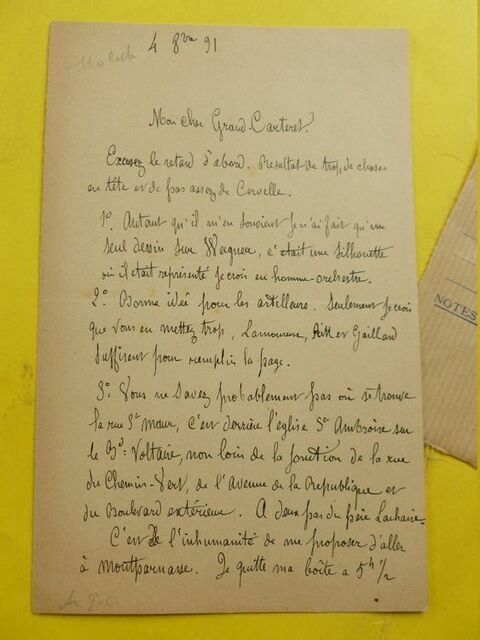 4 8bre 91
Mon cher Grand-Carteret.
Excusez le retard d'abord. Resultat de trop de choses
en tête et de pas assez de Cervelle.
1º. Autant qu'il m'en souvient Je n'ai fait qu'un
seul dessin sur Wagner, c'était une silhouette
où il était représenté Je crois en homme-orchestre.
2º. Bonne idée pour les artilleurs. Seulement Je crois
que vous en mettez trop, Lamoureux, et Gaillard
suffisent pour remplir la page.
3º. Vous ne savez probablement pas où se trouve
la rue St maur, c'est derrière l'église St Ambroise sur
le Bd. Voltaire, non loin de la jonction de la rue
du Chemin-Vert, de l'Avenue de la Republique et
du Boulevard extérieur. A deux pas du père Lachaise.
C'est de l'inhumanité de me proposer d'aller
à Montparnasse. Je quitte ma boîte a 5h 1/2
NOTES